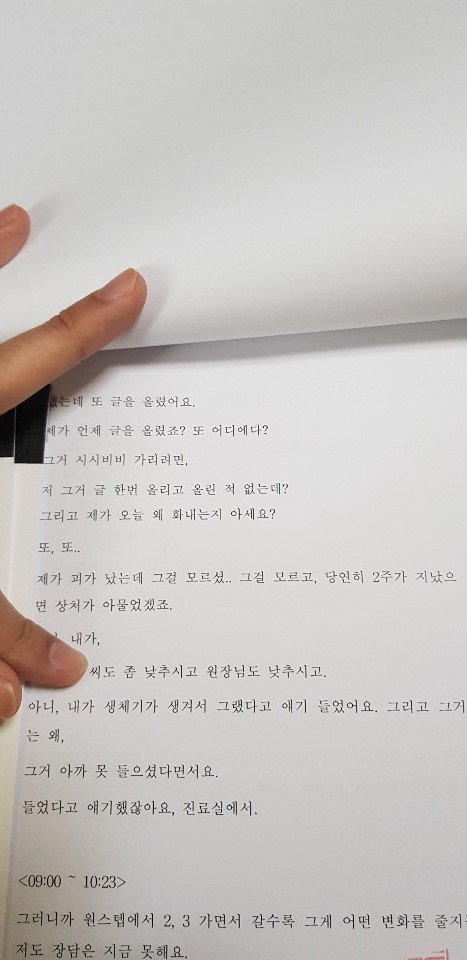 또 글을 올렸어요.
제가 언제 글을 올렸죠? 또 어디에다?
그거 시시비비 가리려면,
저 그거 글 한번 올리고 올린 적 없는데?
그리고 제가 오늘 왜 화내는지 아세요?
또, 또..
제가 피가 났는데 그걸 모르셨.. 그걸 모르고, 당연히 2주가 지났으
면 상처가 아물었겠죠.
내가,
씨도 좀 낮추시고 원장님도 낮추시고.
아니, 내가 생체기가 생겨서 그랬다고 얘기 들었어요. 그리고 그거
는 왜,
그거 아까 못 들으셨다면서요.
들었다고 얘기했잖아요, 진료실에서.
<09:00 ~ 10:23>
그러니까 원스텝에서 2, 3 가면서 갈수록 그게 어떤 변화를 줄지
저도 장담은 지금 못해요.